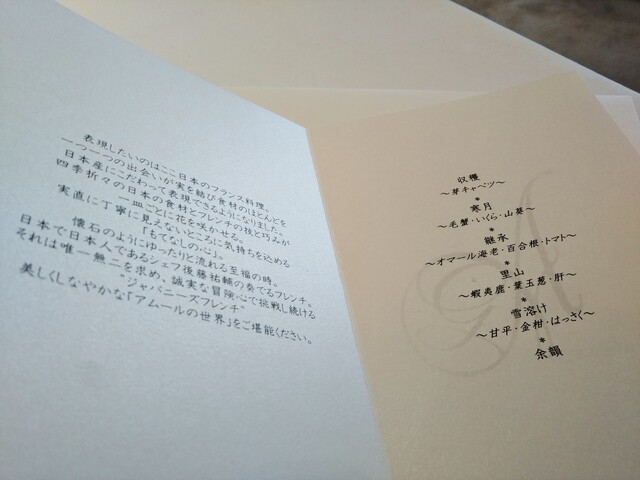 表現したいのはここ日本のフランス料理。
一つ一つの出会いが実を結び食材のほとんどを
日本産にこだわって表現できるようになりました。
四季折々の日本の食材とフレンチの技と巧みが
一皿ごとに花を咲かせる。
実直に丁寧に見えないところに気持ちを込める
「もてなしの心」。
懐石のようにゆったりと流れる至福の時。
日本で日本人であるシェフ後藤祐輔の奏でるフレンチ。
それは唯一無二を求め、誠実な冒険心で挑戦し続ける
"ジャパニーズフレンチ"
美しくしなやかな「アムールの世界」をご堪能ください。
収穫
～芽キャベツ～
*
寒月
～毛蟹・いくら・山葵～
*
継承
～オマール海老・百合根・トマト～
*
里山
～蝦夷鹿・葉玉葱・肝～
*
雪溶け
～甘平・金柑・はっさく～
*
余韻